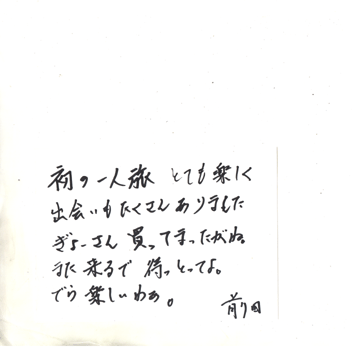 初の一人旅 とても楽しく
出会いもたくさんありました
ぎょーさん 買ってまったがね。
また 来るで 待っとってよ。
でら 楽しいわぁ。
前田